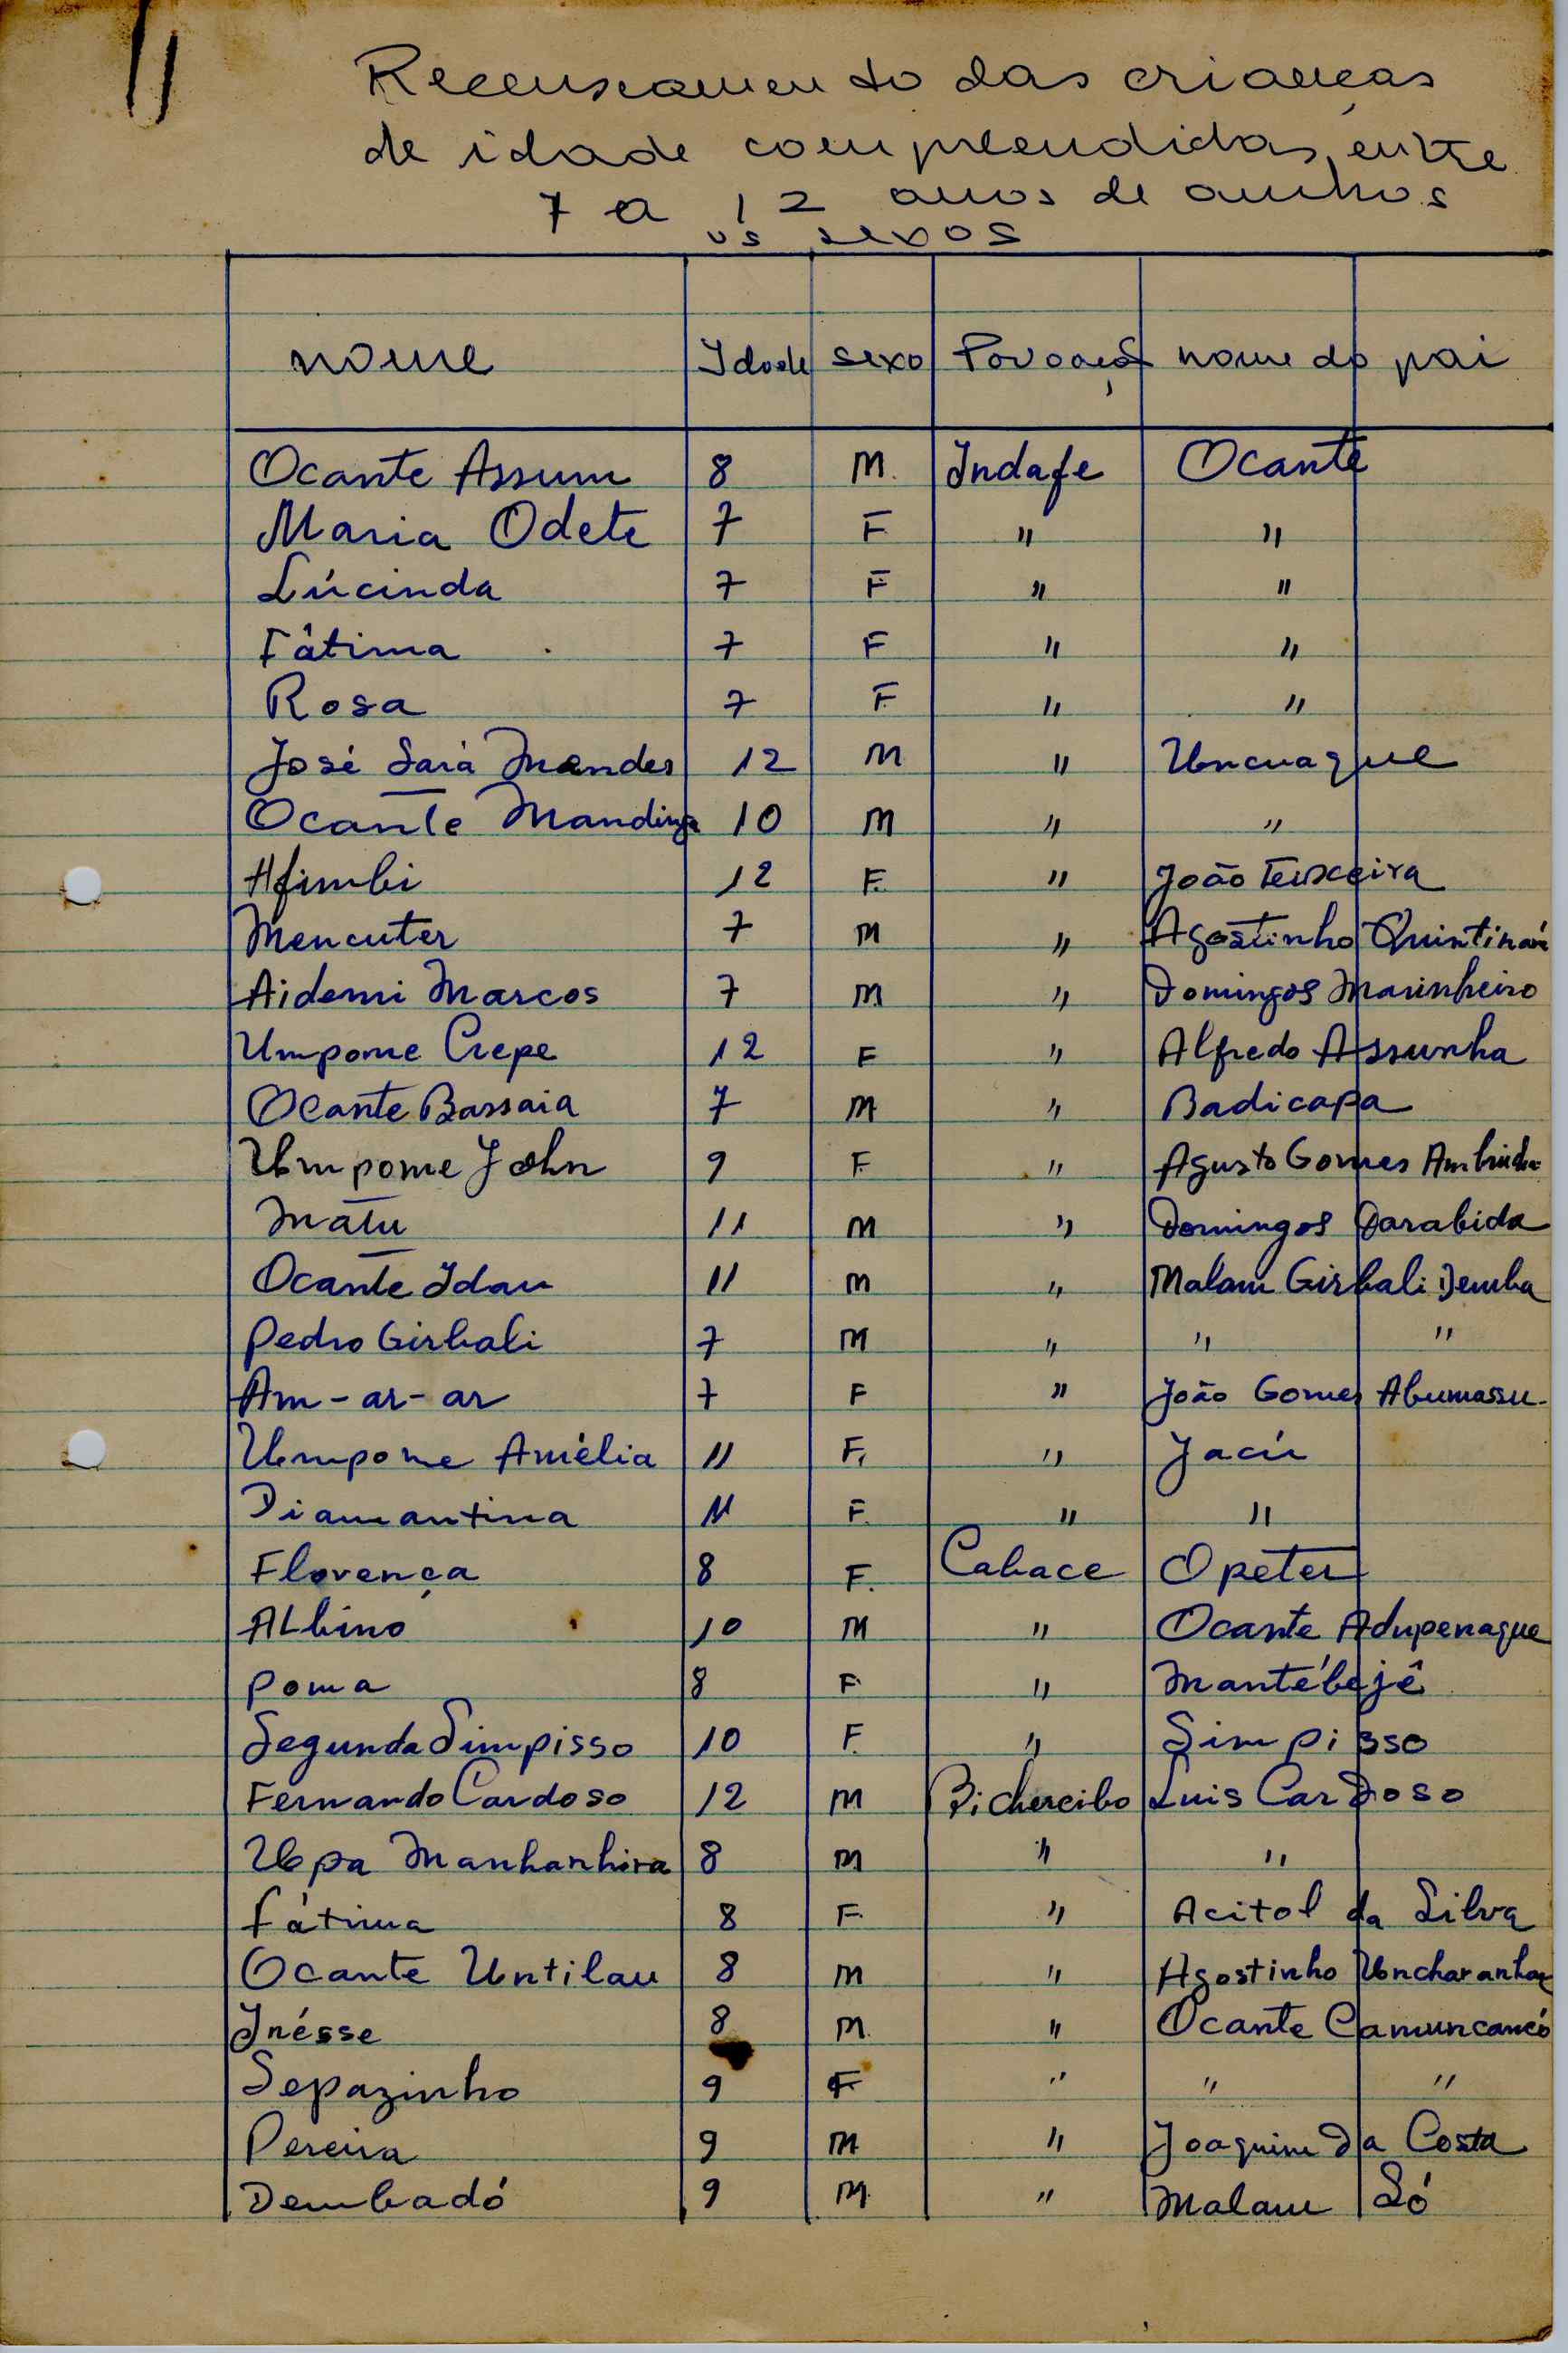 Recenseamento das crianças
de idade compreendidas, entre
7 a 12 anos de ambos
os sexos
nome Idade sexo Povoação nome do pai
Ocante Assum 8 M. Indafe Ocante
Maria Odete 7 F " "
Lúcinda 7 F " "
Fâtima 7 F " "
Rosa 7 F " "
José Saiá Mendes 12 M " Uncuaque
Ocante Mandinga 10 M " "
Afimbi 12 F. " João Teixceira
Mencuter 7 M " Agostinho
Aidemi Marcos 7 M " Domingos Marinheiro
Umpome Crepe 12 F " Alfredo Assunha
Ocante Bassaia 7 M " Badicapa
Umpome John 9 F " Agusto Gomes
Matu 11 M " Domingos Darabida
Ocante Idau 11 M " Malam Girbali Demba
Pedro Girbali 7 M " " "
Am-ar-ar 7 F " João Gomes Abumassu
Umpome Amélia 11 F. " Jacú
Diamantina 11 F. " "
Florença 8 F. Cabace Opeter
ALbino 10 M " Ocante Adupenaque
Poma 8 F " Mantébejê
Segunda Simpisso 10 F. " Simpisso
Fernando Cardoso 12 M Bichercibo Luis Cardoso
Upa Manhanhira 8 M " "
Fátima 8 F. " Acitol da Silva
Ocante Untilau 8 M " Agostinho
Inésse 8 M. " Ocante Camuncancó
Sepazinho 9 F " " "
Pereira 9 M " Joaquim Da Costa
Dembadó 9 M. " Malam Só